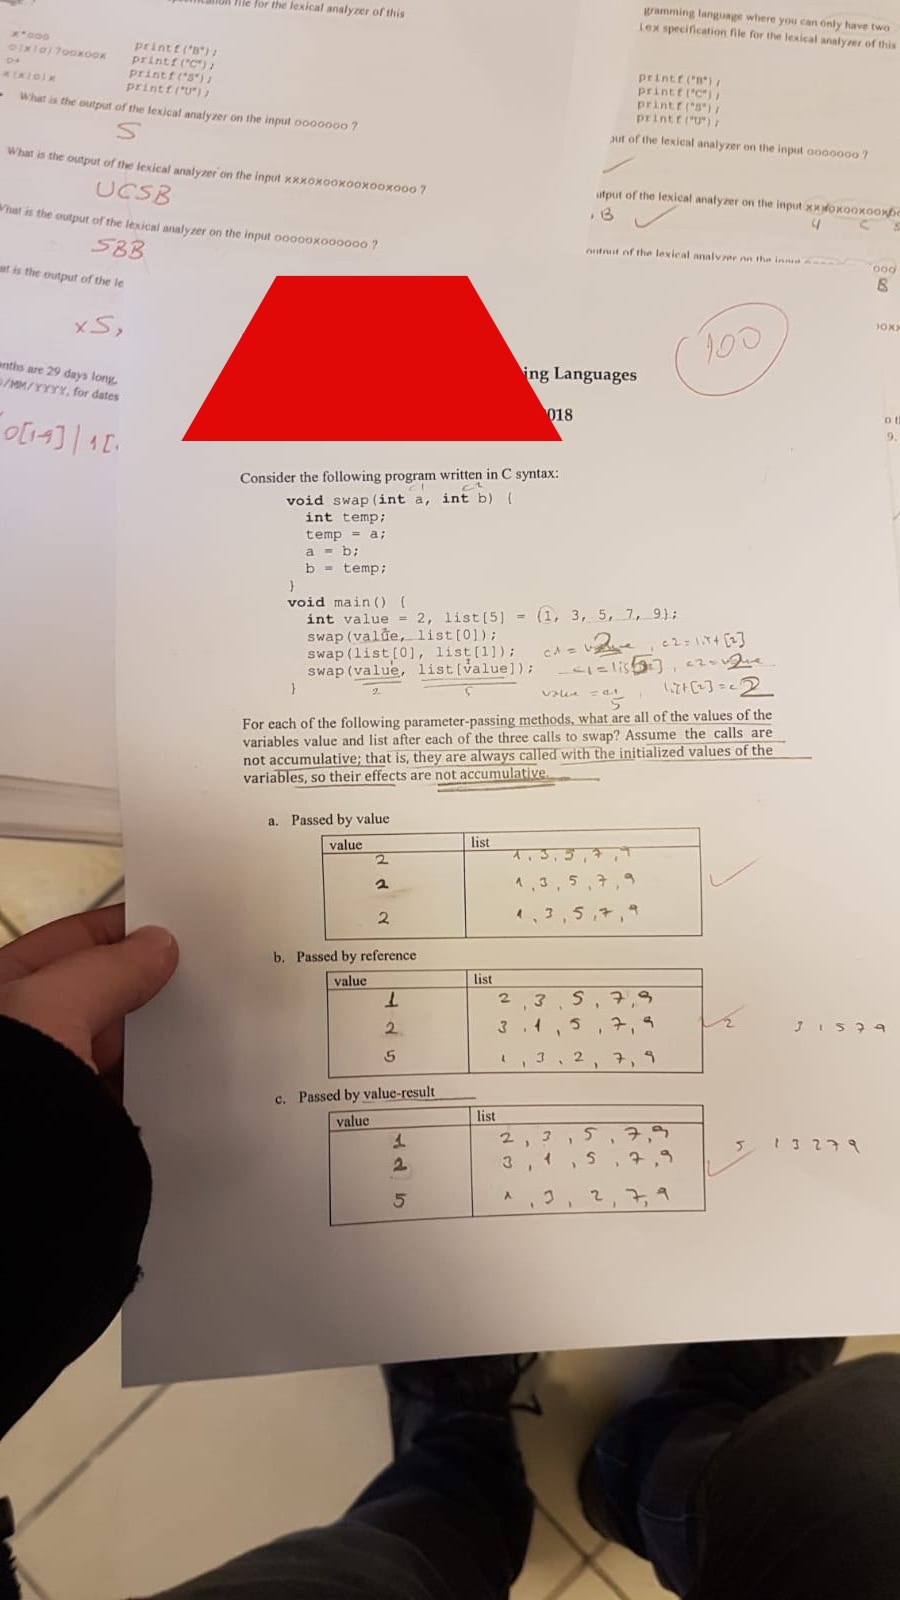 file for the lexical analyzer of this
x*ooo printf("B");
o(x|o)?ooxoox printf("C");
o+ printf("S");
x(x|o)x printf("U");
What is the output of the lexical analyzer on the input ooooooo ?
S
What is the output of the lexical analyzer on the input xxxoxooxooxooxooo ?
UCSB
What is the output of the lexical analyzer on the input oooooxoooooo ?
SBB
at is the output of the le
xS,
nths are 29 days long,
/MM/YYYY, for dates
0[1-9]|1[
gramming language where you can only have two
Lex specification file for the lexical analyzer of this
printf("B");
printf("C");
printf("S");
printf("U");
put of the lexical analyzer on the input ooooooo ?
utput of the lexical analyzer on the input
, B
output of the lexical analyzer on the input
ooo
B
100
ing Languages
018
Consider the following program written in C syntax:
c1 c2
void swap(int a, int b) {
int temp;
temp = a;
a = b;
b = temp;
}
void main() {
int value = 2, list[5] = {1, 3, 5, 7, 9};
swap(value, list[0]);
swap(list[0], list[1]); c1 = value, c2 = list[2]
swap(value, list[value]);
} 2 5
For each of the following parameter-passing methods, what are all of the values of the
variables value and list after each of the three calls to swap? Assume the calls are
not accumulative; that is, they are always called with the initialized values of the
variables, so their effects are not accumulative.
a. Passed by value
value list
2 1, 3, 5, 7, 9
2 1, 3, 5, 7, 9
2 1, 3, 5, 7, 9
b. Passed by reference
value list
1 2, 3, 5, 7, 9
2 3, 1, 5, 7, 9 2 3 1 5 7 9
5 1, 3, 2, 7, 9
c. Passed by value-result
value list
1 2, 3, 5, 7, 9
2 3, 1, 5, 7, 9 5 1 3 2 7 9
5 1, 3, 2, 7, 9